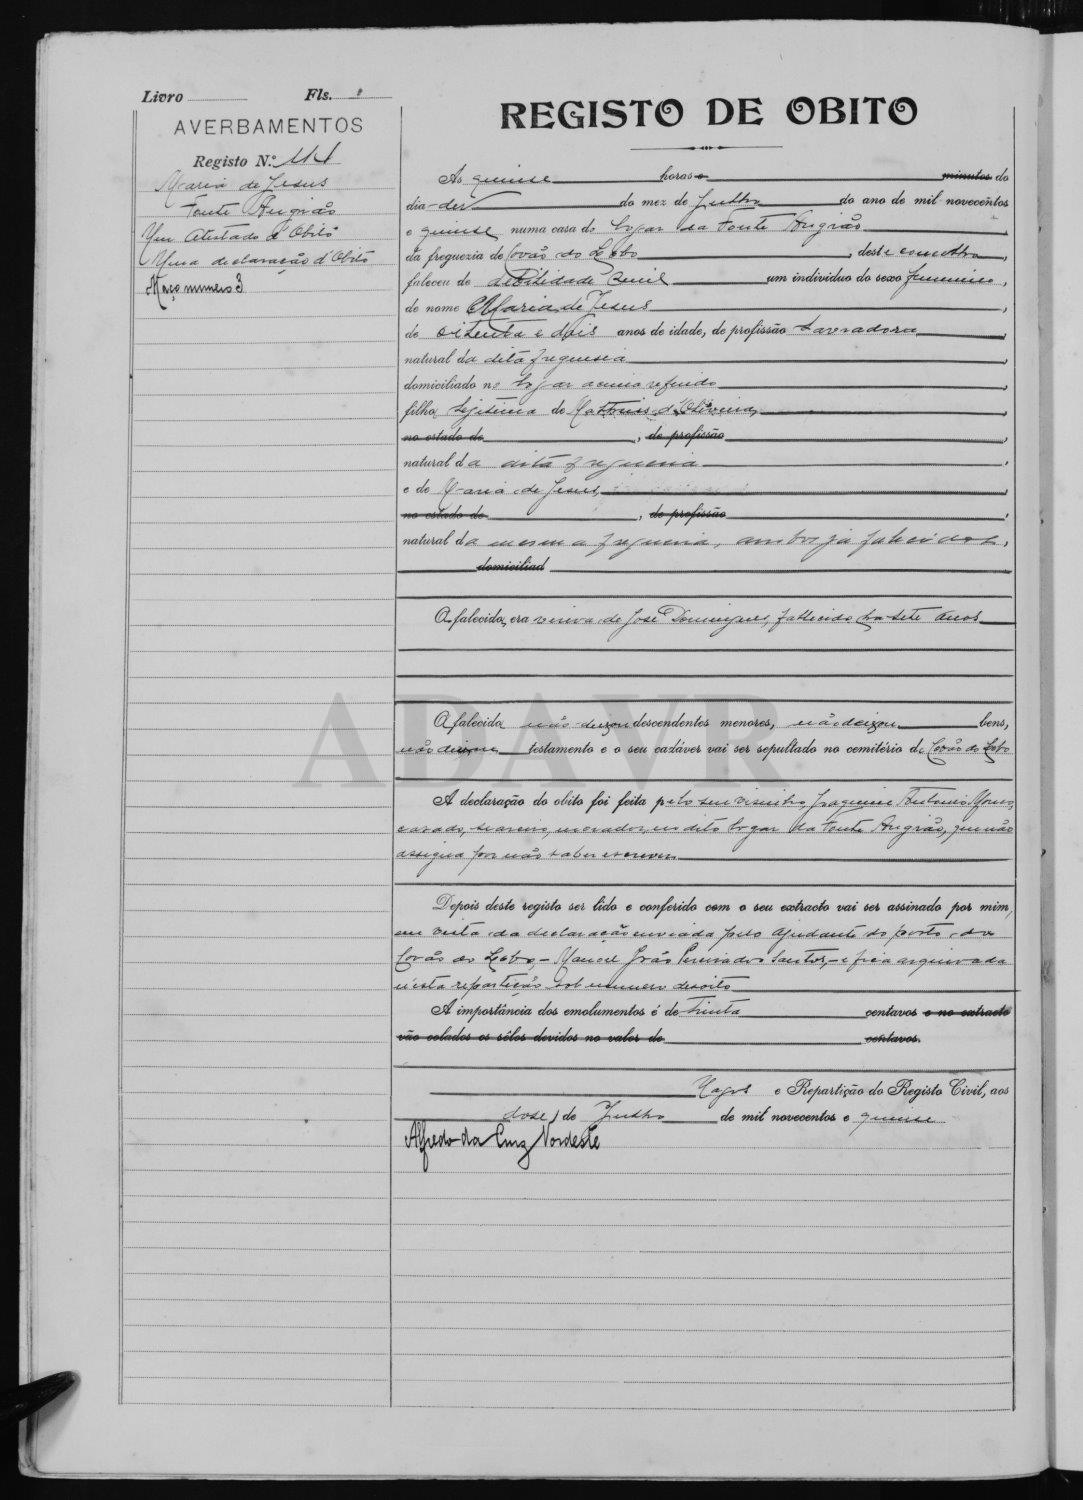 Livro Fls.
AVERBAMENTOS
Registo N.º 114
Maria de Jesus
Fonte Angião
Um Atestado d'Obito
Uma declaração d'Obito
Maço numero 3
REGISTO DE OBITO
Ás quinse horas e minutos do
dia dez do mez de Julho do ano de mil novecentos
e quinse numa casa do logar da Fonte Angião
da freguezia de Covão do Lobo, deste concelho,
faleceu de debilidade senil um individuo do sexo feminino,
de nome Maria de Jesus,
de oitenta e dois anos de idade, de profissão Lavradora,
natural da dita freguesia
domiciliado no logar acima referido,
filha legitima de d'Oliveira,
no estado de, de profissão,
natural da dita freguesia,
e de Maria de Jesus,
no estado de, de profissão,
natural da mesma freguesia, ambos já falecidos,
domiciliad
A falecida era viuva de José Domingues, fallecido ha sete anos
ADAVR
A falecida não deixou descendentes menores, não deixou bens,
não deixou testamento e o seu cadáver vai ser sepultado no cemitério de Covão do Lobo
A declaração do obito foi feita pelo seu visinho, Joaquim Antonio,
casado, seareiro, morador no dito logar da Fonte Angião, que não
assigna por não saber escrever
Depois deste registo ser lido e conferido com o seu extracto vai ser assinado por mim,
em vista da declaração enviada pelo ajudante do posto do
Covão do Lobo, - Manoel Grão Pereira dos Santos, - e fica arquivada
nesta repartição sob numero desoito
A importância dos emolumentos é de trinta centavos e no extracto
vão colados os sêlos devidos no valor de centavos.
Vagos e Repartição do Registo Civil, aos
dose de Julho de mil novecentos e quinse
Alfredo da Cruz Nordeste